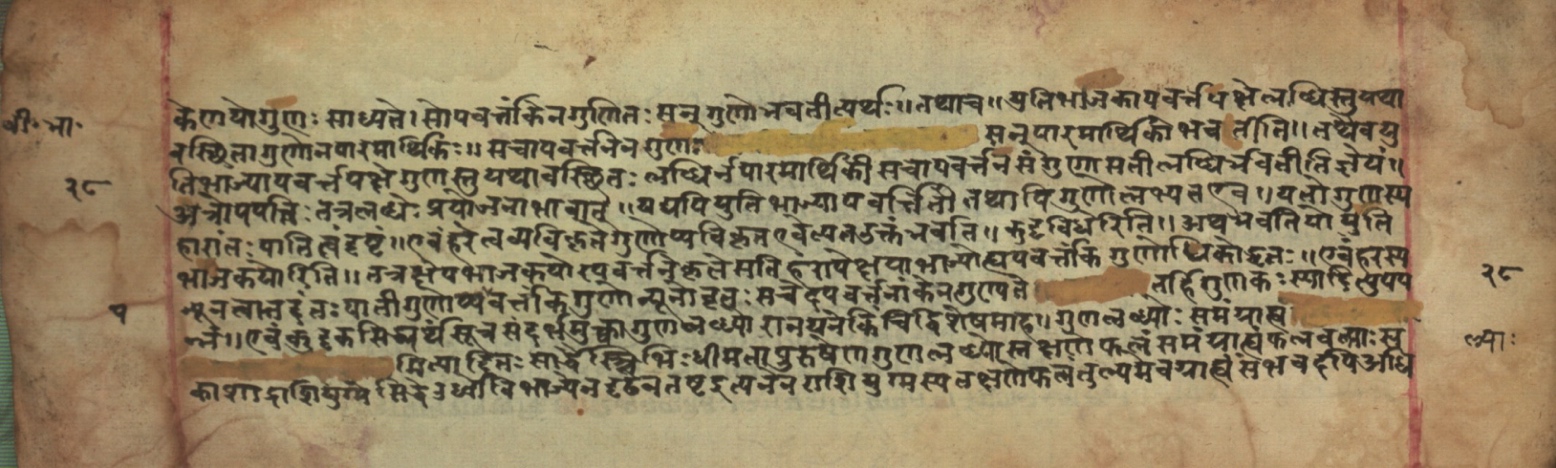 केण यो गुणः साध्यते। सोपवर्त्तांकेन गुणितः सन् गुणो भवतीत्यर्थः॥ तथाच॥ युतिभाजकापवर्त्तपक्षे लब्धिस्तु यथा
वी॰ भा॰
वस्थिता गुणो न पारमार्थिकः॥ सचापवर्त्तनेन गुणः सन् पारमार्थिको भवतीति॥ तथैव यु
तिभाज्यापवर्त्तपक्षे गुणस्तु यथावस्थितः लब्धिर्न पारमार्थिकी सचापवर्त्तनसंगुणा सती लब्धिर्भवतीति ज्ञेयं॥
२८
अत्रोपपत्तिः तत्र लब्धेः प्रयोजनाभावात्॥ यद्यपि युतिभाज्यापवर्त्तितौ तथापि गुणो लभ्यत एव॥ यतो गुणस्य
हारांतः पातित्वं दृष्टं॥ एवं हरे लब्धविकृते गुणोप्यविकृत एवेत्यत उक्तं भवति॥ कुट्टविधेरिति॥ अथ भवति यो युति
भाजकयोरिति॥ तत्र क्षेपभाजकयोरपवर्त्तने कृते सति हरापेक्षया भाज्योह्यपवर्त्तांकगुणोधिको कृतः॥ एवं हरस्य
न्यूनत्वात्तदंतः पाती गुणोप्यपवर्त्तांकगुणो न्यूनो वृत्तः स चेदपवर्त्तनांकेन गुण्यते तर्हि गुणकः स्यादित्युपप
२८
न्नं॥ एवं कुट्टकसिद्ध्यर्थं सूत्रसंदर्भमुक्त्वा गुणलब्ध्योरानयने किंचिद्विशेषमाह॥ गुणलब्ध्योः समं ग्राह्यं
मित्यादितः सार्द्धैस्त्रिभिः धीमता पुरुषेण गुणलब्ध्योस्तक्षणे फलं समं ग्राह्यं फलवल्ल्याः स
ल्याः
काशाद्राशियुग्मे सिद्धे ऊर्ध्वो विभाज्येन दृढेन तष्ट इत्यनेन राशियुग्मस्य तक्षणफलतुल्यमेव ग्राह्यं संभवेदपि अधि